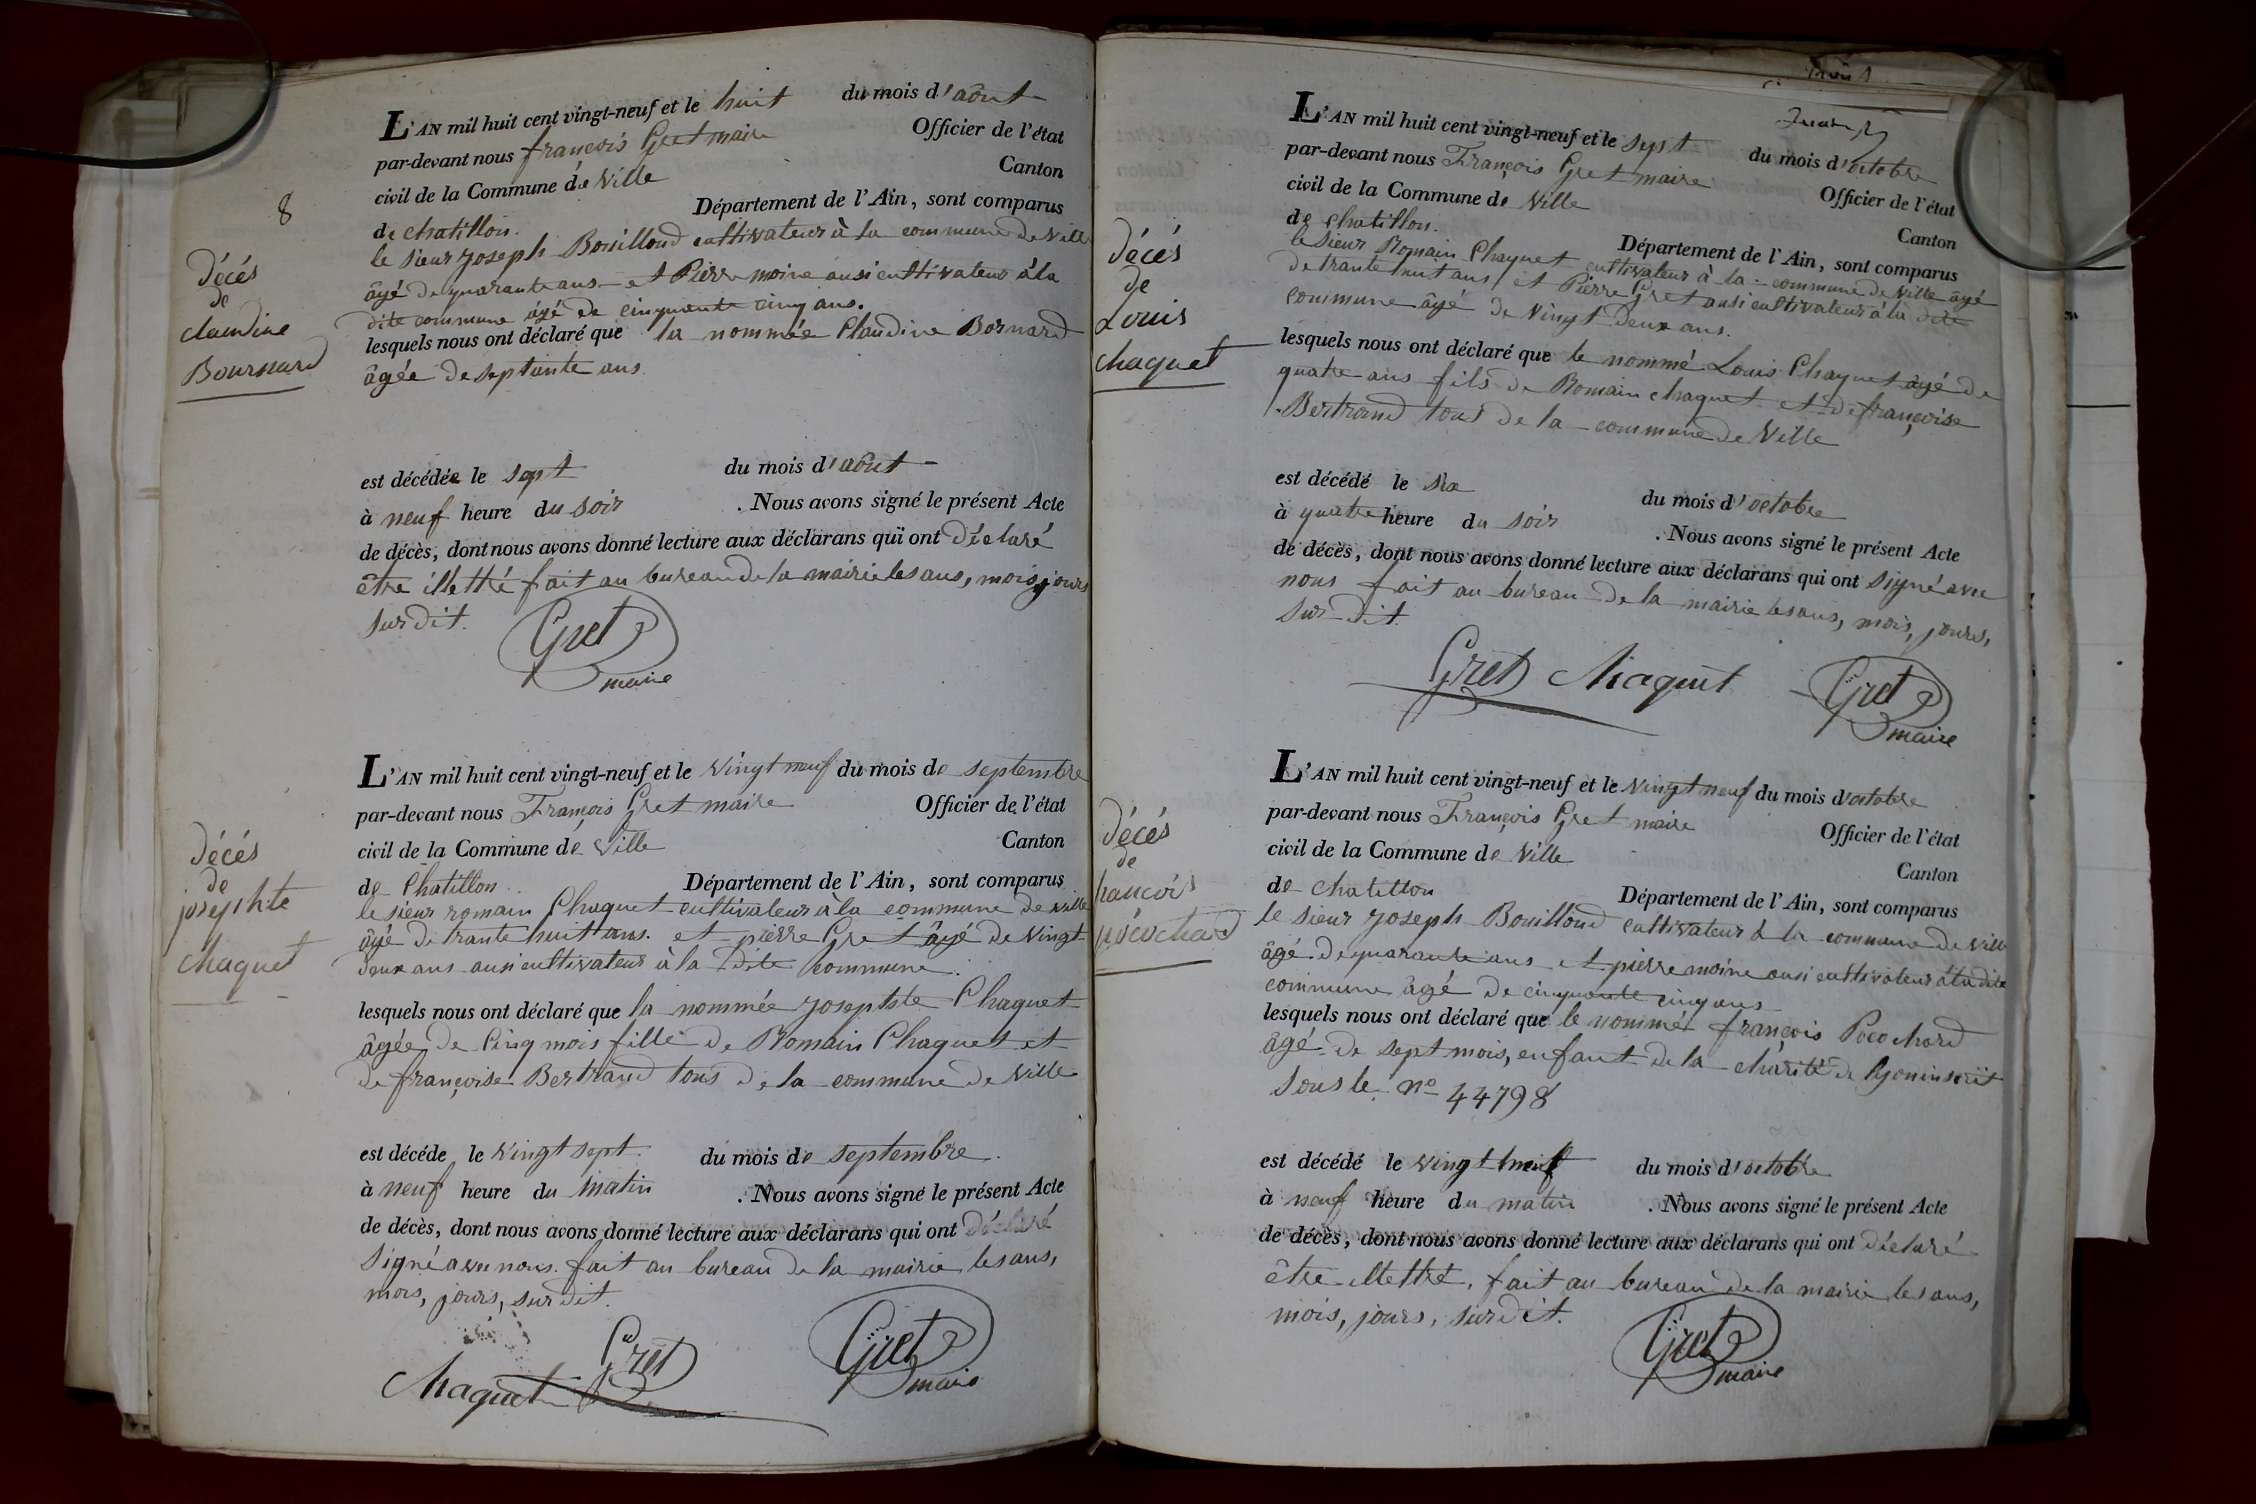 8
décés
de
claudine
Bournard
L'AN mil huit cent vingt-neuf et le huit du mois d'aôut
par-devant nous françois Gret maire Officier de l'état
civil de la Commune de Ville Canton
de chatillon. Département de l'Ain, sont comparus
le sieur joseph Bouilloud cultivateur à la commune de Ville
âgé de quarante ans et Pierre moine ausi cultivateur à la
dite commune âgé de cinquante cinq ans.
lesquels nous ont déclaré que la nommée Claudine Bornard
âgée de septante ans
est décédée le sept du mois d'aôut
à neuf heure du soir . Nous avons signé le présent Acte
de décès, dont nous avons donné lecture aux déclarans qui ont déclaré
être illettré fait au bureau de la mairie les ans, mois, jours
sur dit.
Gret
maire
décés
de
josephte
chaquet
L'AN mil huit cent vingt-neuf et le vingt neuf du mois de septembre
par-devant nous François Gret maire Officier de l'état
civil de la Commune de Ville Canton
de Chatillon Département de l'Ain, sont comparus
le sieur romain Chaquet cultivateur à la commune de ville
âgé de trante huit ans. et pierre Gret âgé de vingt
deux ans ausi cultivateur à la dite commune.
lesquels nous ont déclaré que la nommée josephte Chaquet
âgée de Cinq mois fille de Romain Chaquet et
de françoise Bertrand tous de la commune de Ville
est décéde le vingt sept du mois de septembre.
à neuf heure du matin . Nous avons signé le présent Acte
de décès, dont nous avons donné lecture aux déclarans qui ont déclaré
signé avec nous. fait au bureau de la mairie les ans,
mois, jours, sur dit.
Gret
Chaquet
Gret
maire
décés
de
Louis
chaquet
L'AN mil huit cent vingt-neuf et le sept du mois d'octobre
par-devant nous François Gret maire Officier de l'état
civil de la Commune de Ville Canton
de chatillon. Département de l'Ain, sont comparus
le sieur Romain Chaquet cultivateur à la commune de Ville âgé
de trante huit ans, et Pierre Gret ausi cultivateur à la dite
commune âgé de Vingt deux ans.
lesquels nous ont déclaré que le nommé Louis Chaquet âgé de
quatre ans fils de Romain chaquet et de françoise
Bertrand tous de la commune de Ville
est décédé le six du mois d'octobre
à quatre heure du soir . Nous avons signé le présent Acte
de décès, dont nous avons donné lecture aux déclarans qui ont signé avec
nous fait au bureau de la mairie les ans, mois, jours,
sur dit.
Gret Chaquet Gret
maire
décés
de
francois
pocochard
L'AN mil huit cent vingt-neuf et le vingt neuf du mois d'octobre
par-devant nous François Gret maire Officier de l'état
civil de la Commune de Ville Canton
de chatillon Département de l'Ain, sont comparus
le sieur joseph Bouilloud cultivateur à la commune de ville
âgé de quarante ans et pierre moine ausi cultivateur à la dite
commune âgé de cinquante cinq ans
lesquels nous ont déclaré que le nommé françois Pocochard
âgé de sept mois, enfant de la charité de lyon inscrit
sous le nº 44798
est décédé le vingt neuf du mois d'octobre
à neuf heure du matin . Nous avons signé le présent Acte
de décès, dont nous avons donné lecture aux déclarans qui ont déclaré
être illettré. fait au bureau de la mairie les ans,
mois, jours, sur dit.
Gret
maire